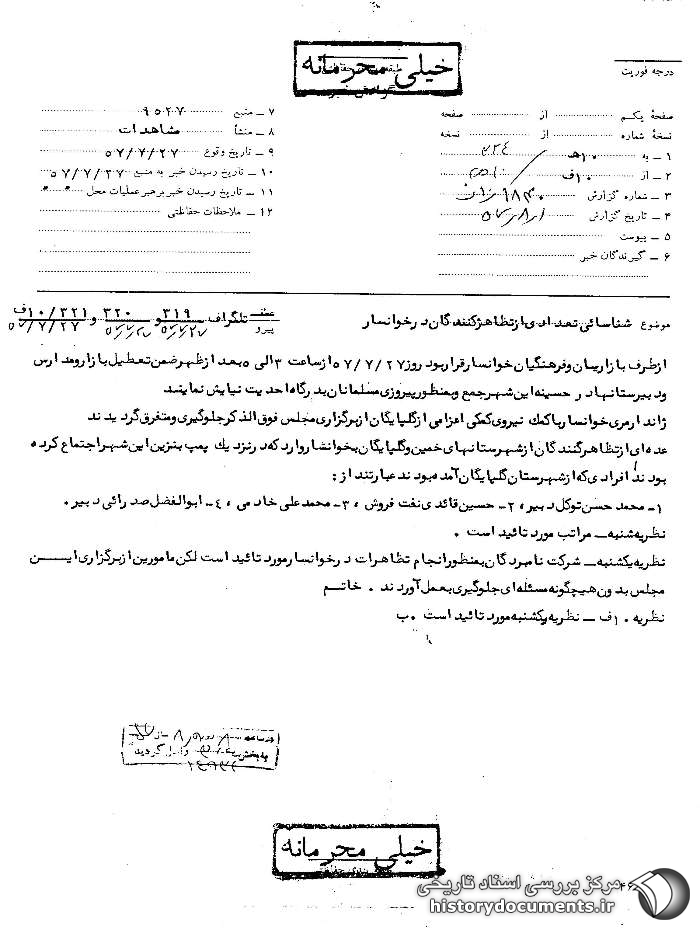 خیلی محرمانه
درجه فوریت
صفحهٔ یکم از صفحه
نسخهٔ شماره از نسخه
۱ ـ به ۱۰هـ
۲ ـ از ۱۰ف
۳ ـ شماره گزارش
۴ ـ تاریخ گزارش
۵ ـ پیوست
۶ ـ گیرندگان خبر
۷ ـ منبع ۹۵۲۷
۸ ـ منشأ مشاهدات
۹ ـ تاریخ وقوع ۵۷/۷/۲۷
۱۰ ـ تاریخ رسیدن خبر به منبع ۵۷/۷/۲۷
۱۱ ـ تاریخ رسیدن خبر برهبر عملیات محل
۱۲ ـ ملاحظات حفاظتی
موضوع شناسائی تعدادی از تظاهرکنندگان در خوانسار
پیرو تلگراف ۳۱۹ و ۳۲۰ و ۱۰/۳۲۱ف
۵۷/۷/۲۷
از طرف بازاریان و فرهنگیان خوانسار قرار بود روز ۵۷/۷/۲۷ از ساعت ۳ الی ۵ بعد از ظهر ضمن تعطیل بازار و مدارس
و دبیرستانها در حسینه این شهر جمع و بمنظور پیروزی مسلمانان بدرگاه احدیت نیایش نمایند
ژاندارمری خوانسار با کمک نیروی کمکی اعزامی از گلپایگان از برگزاری مجلس فوق الذکر جلوگیری و متفرق گردیدند
عده ای از تظاهرکنندگان از شهرستانهای خمین و گلپایگان بخوانسار وارد که در نزدیک پمپ بنزین این شهر اجتماع کرده
بودند افرادی که از شهرستان گلپایگان آمده بودند عبارتند از :
۱ـ محمد حسن توکل دبیر ، ۲ـ حسین قائدی نفت فروش ، ۳ـ محمد علی خادمی ، ٤ـ ابوالفضل صدرائی دبیر .
نظریه شنبه ـ مراتب مورد تائید است .
نظریه یکشنبه ـ شرکت نامبردگان بمنظور انجام تظاهرات در خوانسار مورد تائید است لکن مامورین از برگزاری این
مجلس بدون هیچگونه مسئله ای جلوگیری بعمل آوردند . خاتم
نظریه ۱۰ف ـ نظریه یکشنبه مورد تائید است . ب
در ساعت روز
به بخش واصل گردید
خیلی محرمانه
مرکز بررسی اسناد تاریخی
historydocuments.ir